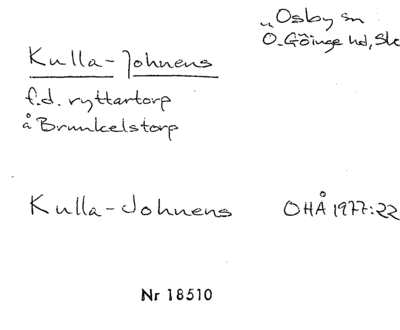 Osby sn
Ö. Göinge hd, Sk
Kulla-Johnens
f.d. ryttartorp
å Brunkelstorp
Kulla-Johnens OHÅ 1977:22
Nr 18510